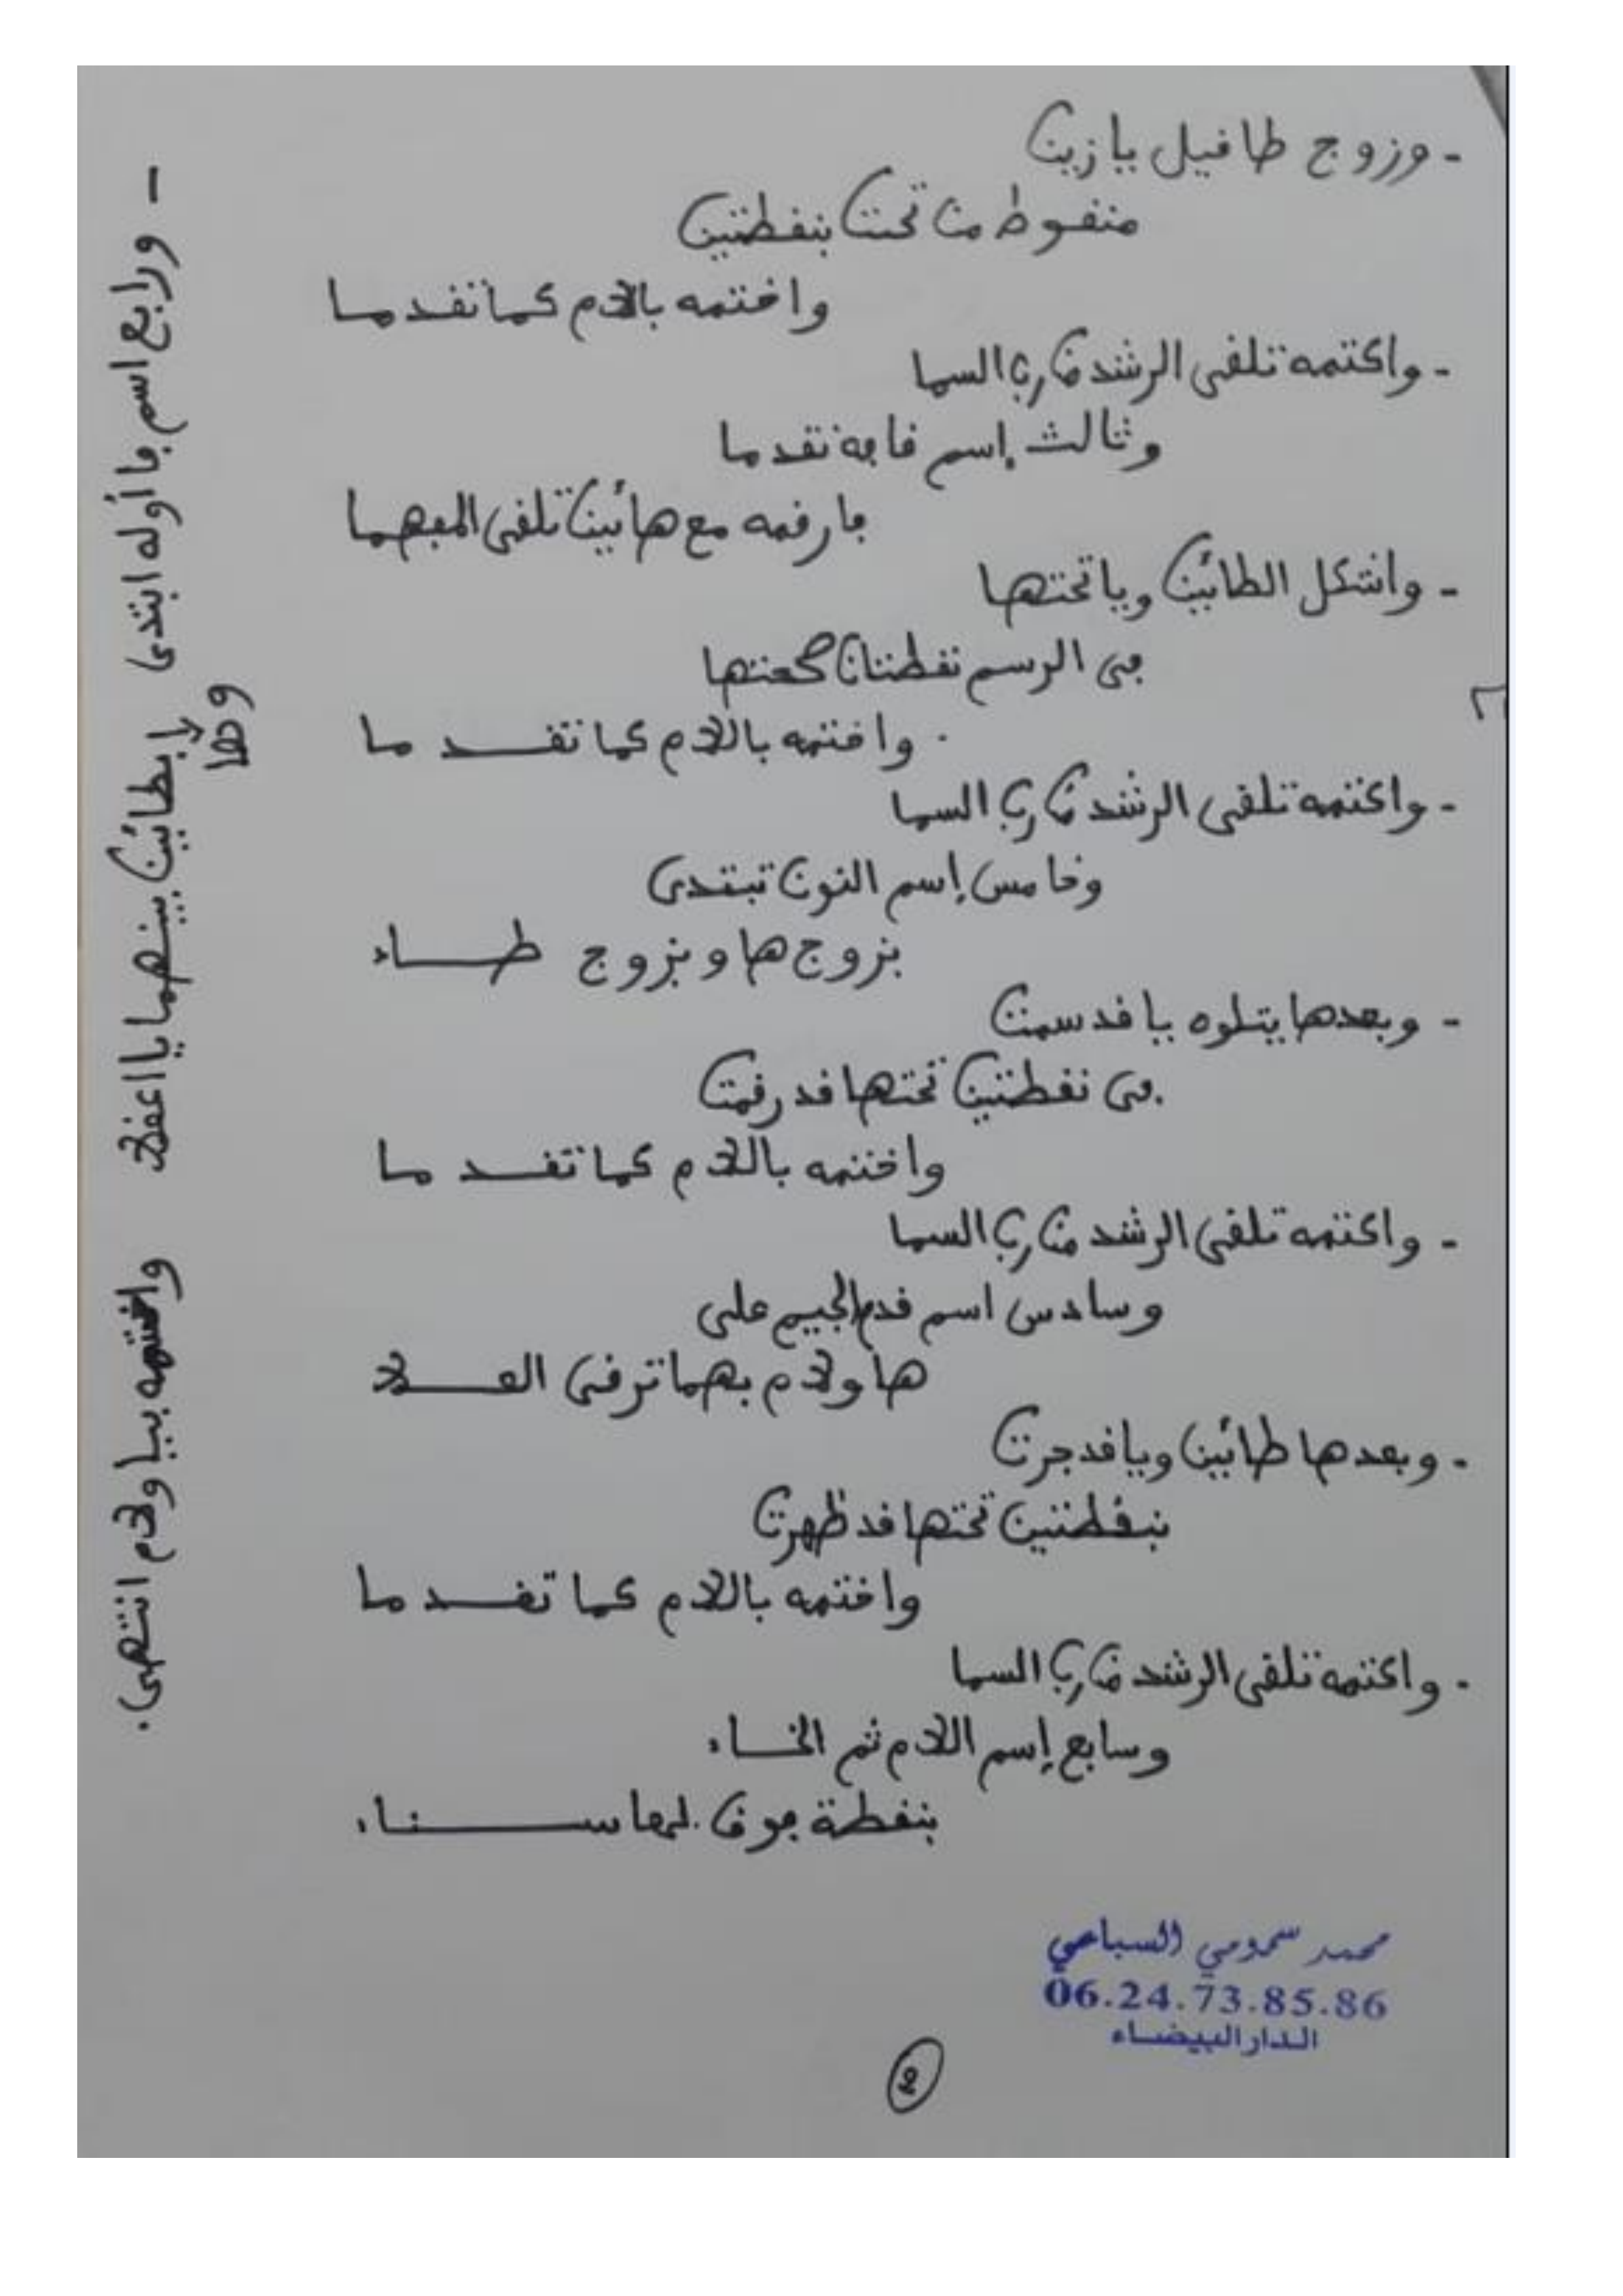 - وزوج طا فيل يا زين
منقوط من تحت بنقطتين
واختمه بالام كما تقدما
- واكتمه تلقى الرشد من رب السما
وثالث إسم فا به تقدما
فارقمه مع هائين تلقى المبهما
- واشكل الطائين ويا تحتها
في الرسم نقطتان
واختمه باللام كما تقدما
- واكتمه تلقى الرشد من رب السما
وخامس إسم النون تبتدى
بزوج ها وبزوج طاء
- وبعدها يتلوه يا قد سمت
في نقطتين تحتها قد رقمت
واختمه باللام كما تقدما
- واكتمه تلقى الرشد من رب السما
وسادس اسم قدم الجيم على
ها ولام بهما ترقى العلا
- وبعدها طائين ويا قد جرت
بنقطتين تحتها قد ظهرت
واختمه باللام كما تقدما
- واكتمه تلقى الرشد من رب السما
وسابع إسم اللام ثم الخاء
بنقطة فوق لها سناء
- ورابع اسم فا أوله ابتدى
وها
بطائين بينهما يا
واختمه بيا ولام انتهى.
محمد سمومي السباعي
06.24.73.85.86
الدار البيضاء